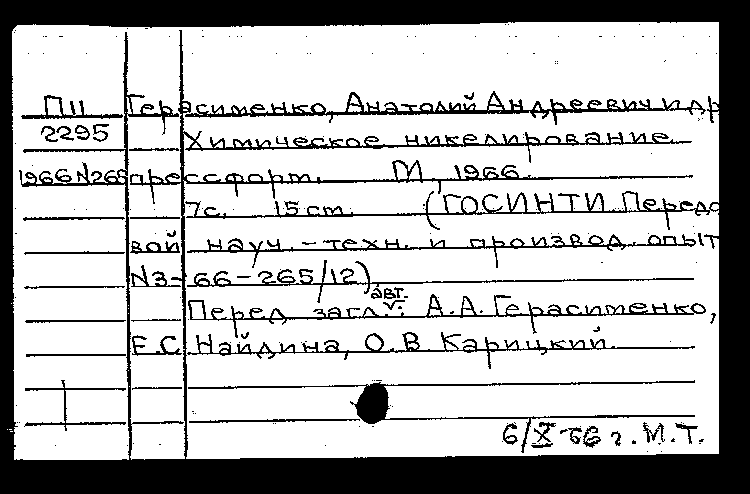 П11 Герасименко, Анатолий Андреевич и др
2295 Химическое никелирование
1966 N265 прессформ. М., 1966.
7с. 15 cm. (ГОСИНТИ. Передо
вой науч.-техн. и производ. опыт
N3-66-265/12)
авт.
Перед загл.: А.А.Герасименко,
Е.С. Найдина, О.В. Карицкий.
6/X-66 г. М.Т.